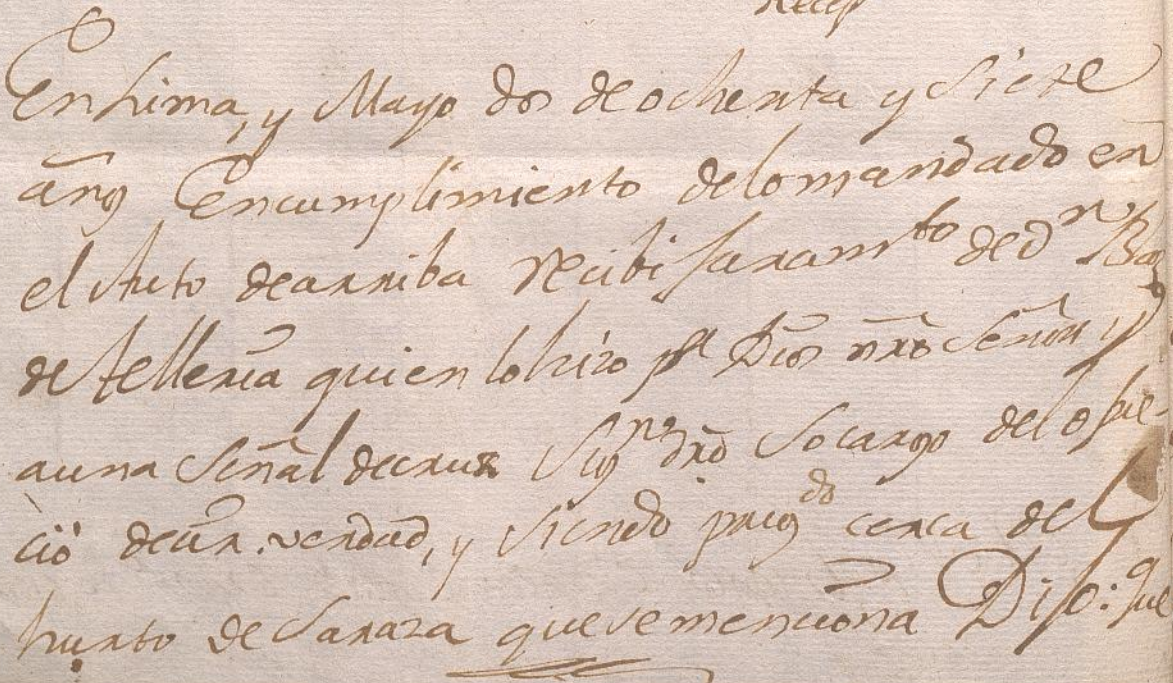 Recep
En Lima, y Mayo dos de ochenta y siete
años En cumplimiento de lo mandado en
el Auto de arriba recibi juramto de Dn Blas
de Telleria quien lo hizo pr Dios nro Señor y
a una señal de cruz sgn dro so cargo del ofre
ció decir verdad, y siendo pregdo cerca del
hurto de saraza que se menciona Dijo: que